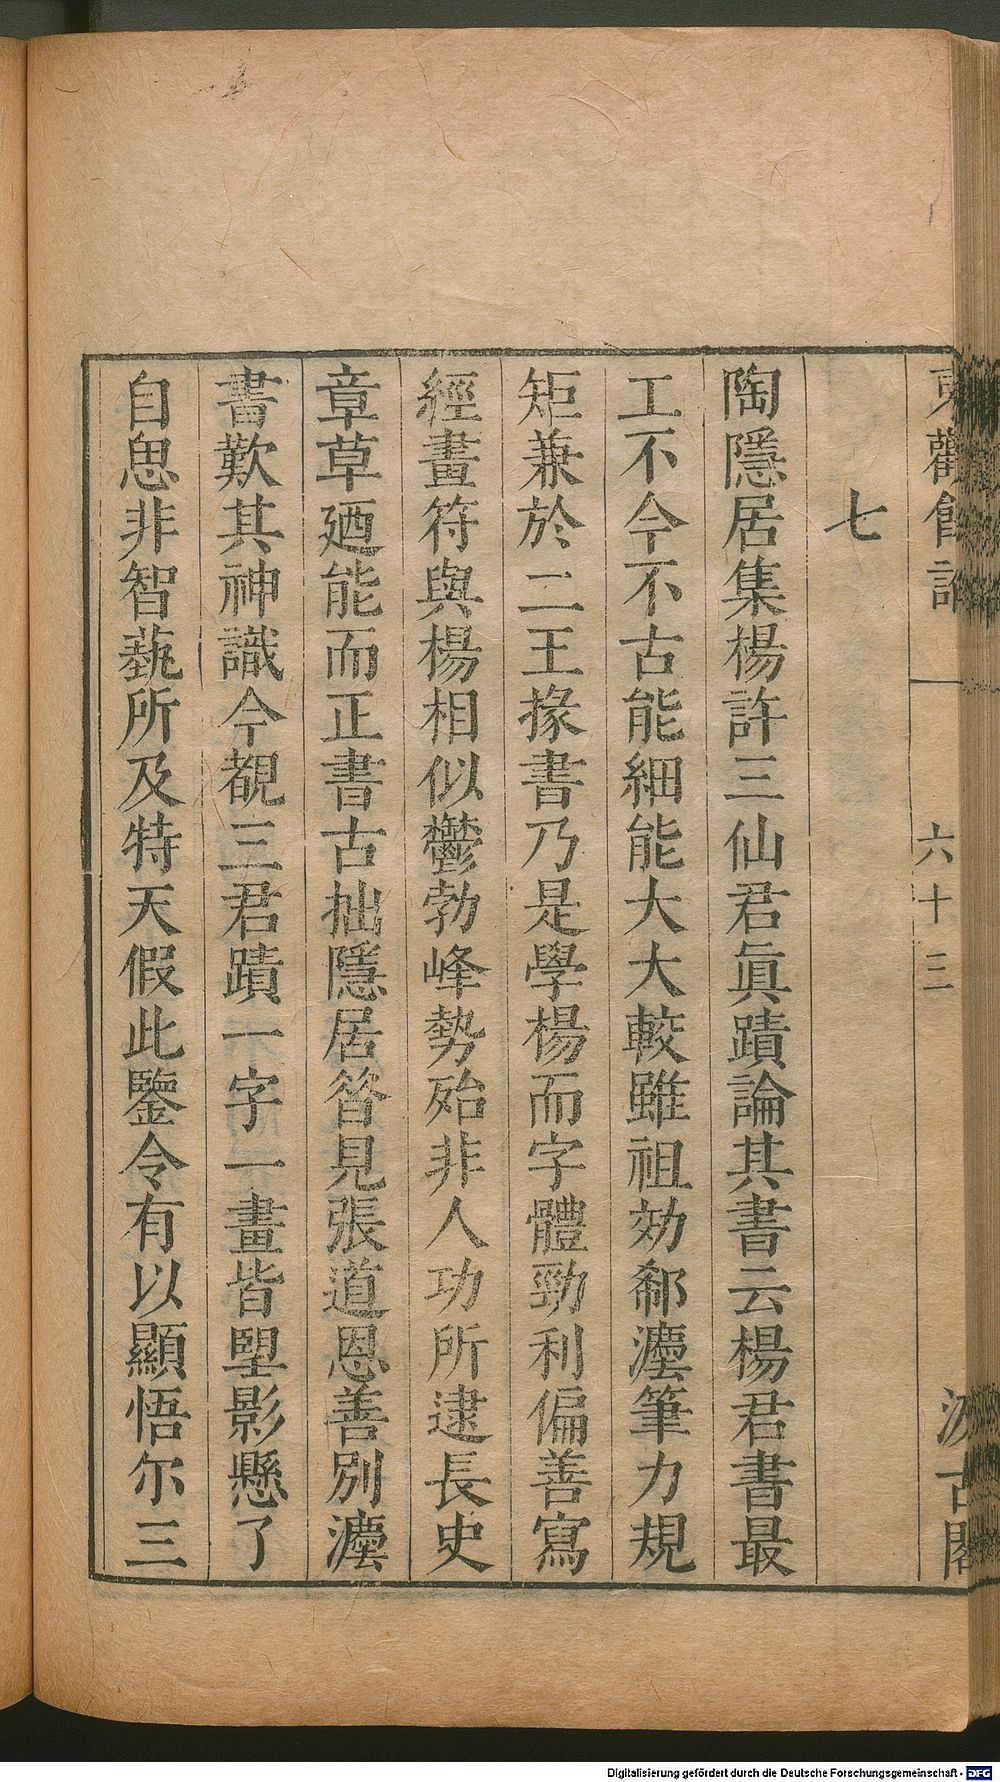 東觀餘論
六十三
汲古閣
七
陶隱居集楊許三仙君眞蹟論其書云楊君書最
工不今不古能細能大大較雖祖効郗灋筆力規
矩兼於二王掾書乃是學楊而字體勁利偏善寫
經畫符與楊相似鬱勃峰勢殆非人功所逮長史
章草廼能而正書古拙隱居昝見張道恩善別灋
書歎其神識今覩三君蹟一字一畫皆朢影懸了
自思非智蓺所及特天假此鑒令有以顯悟尔三
Digitalisierung gefördert durch die Deutsche Forschungsgemeinschaft - DFG